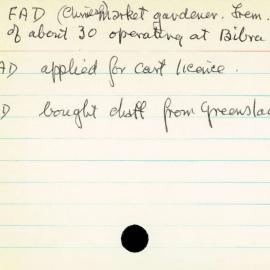 FAD (Chinese) Market gardener. Frem.
of about 30 operating at Bibra
AD applied for cart licence.
D bought duff from Greenslad